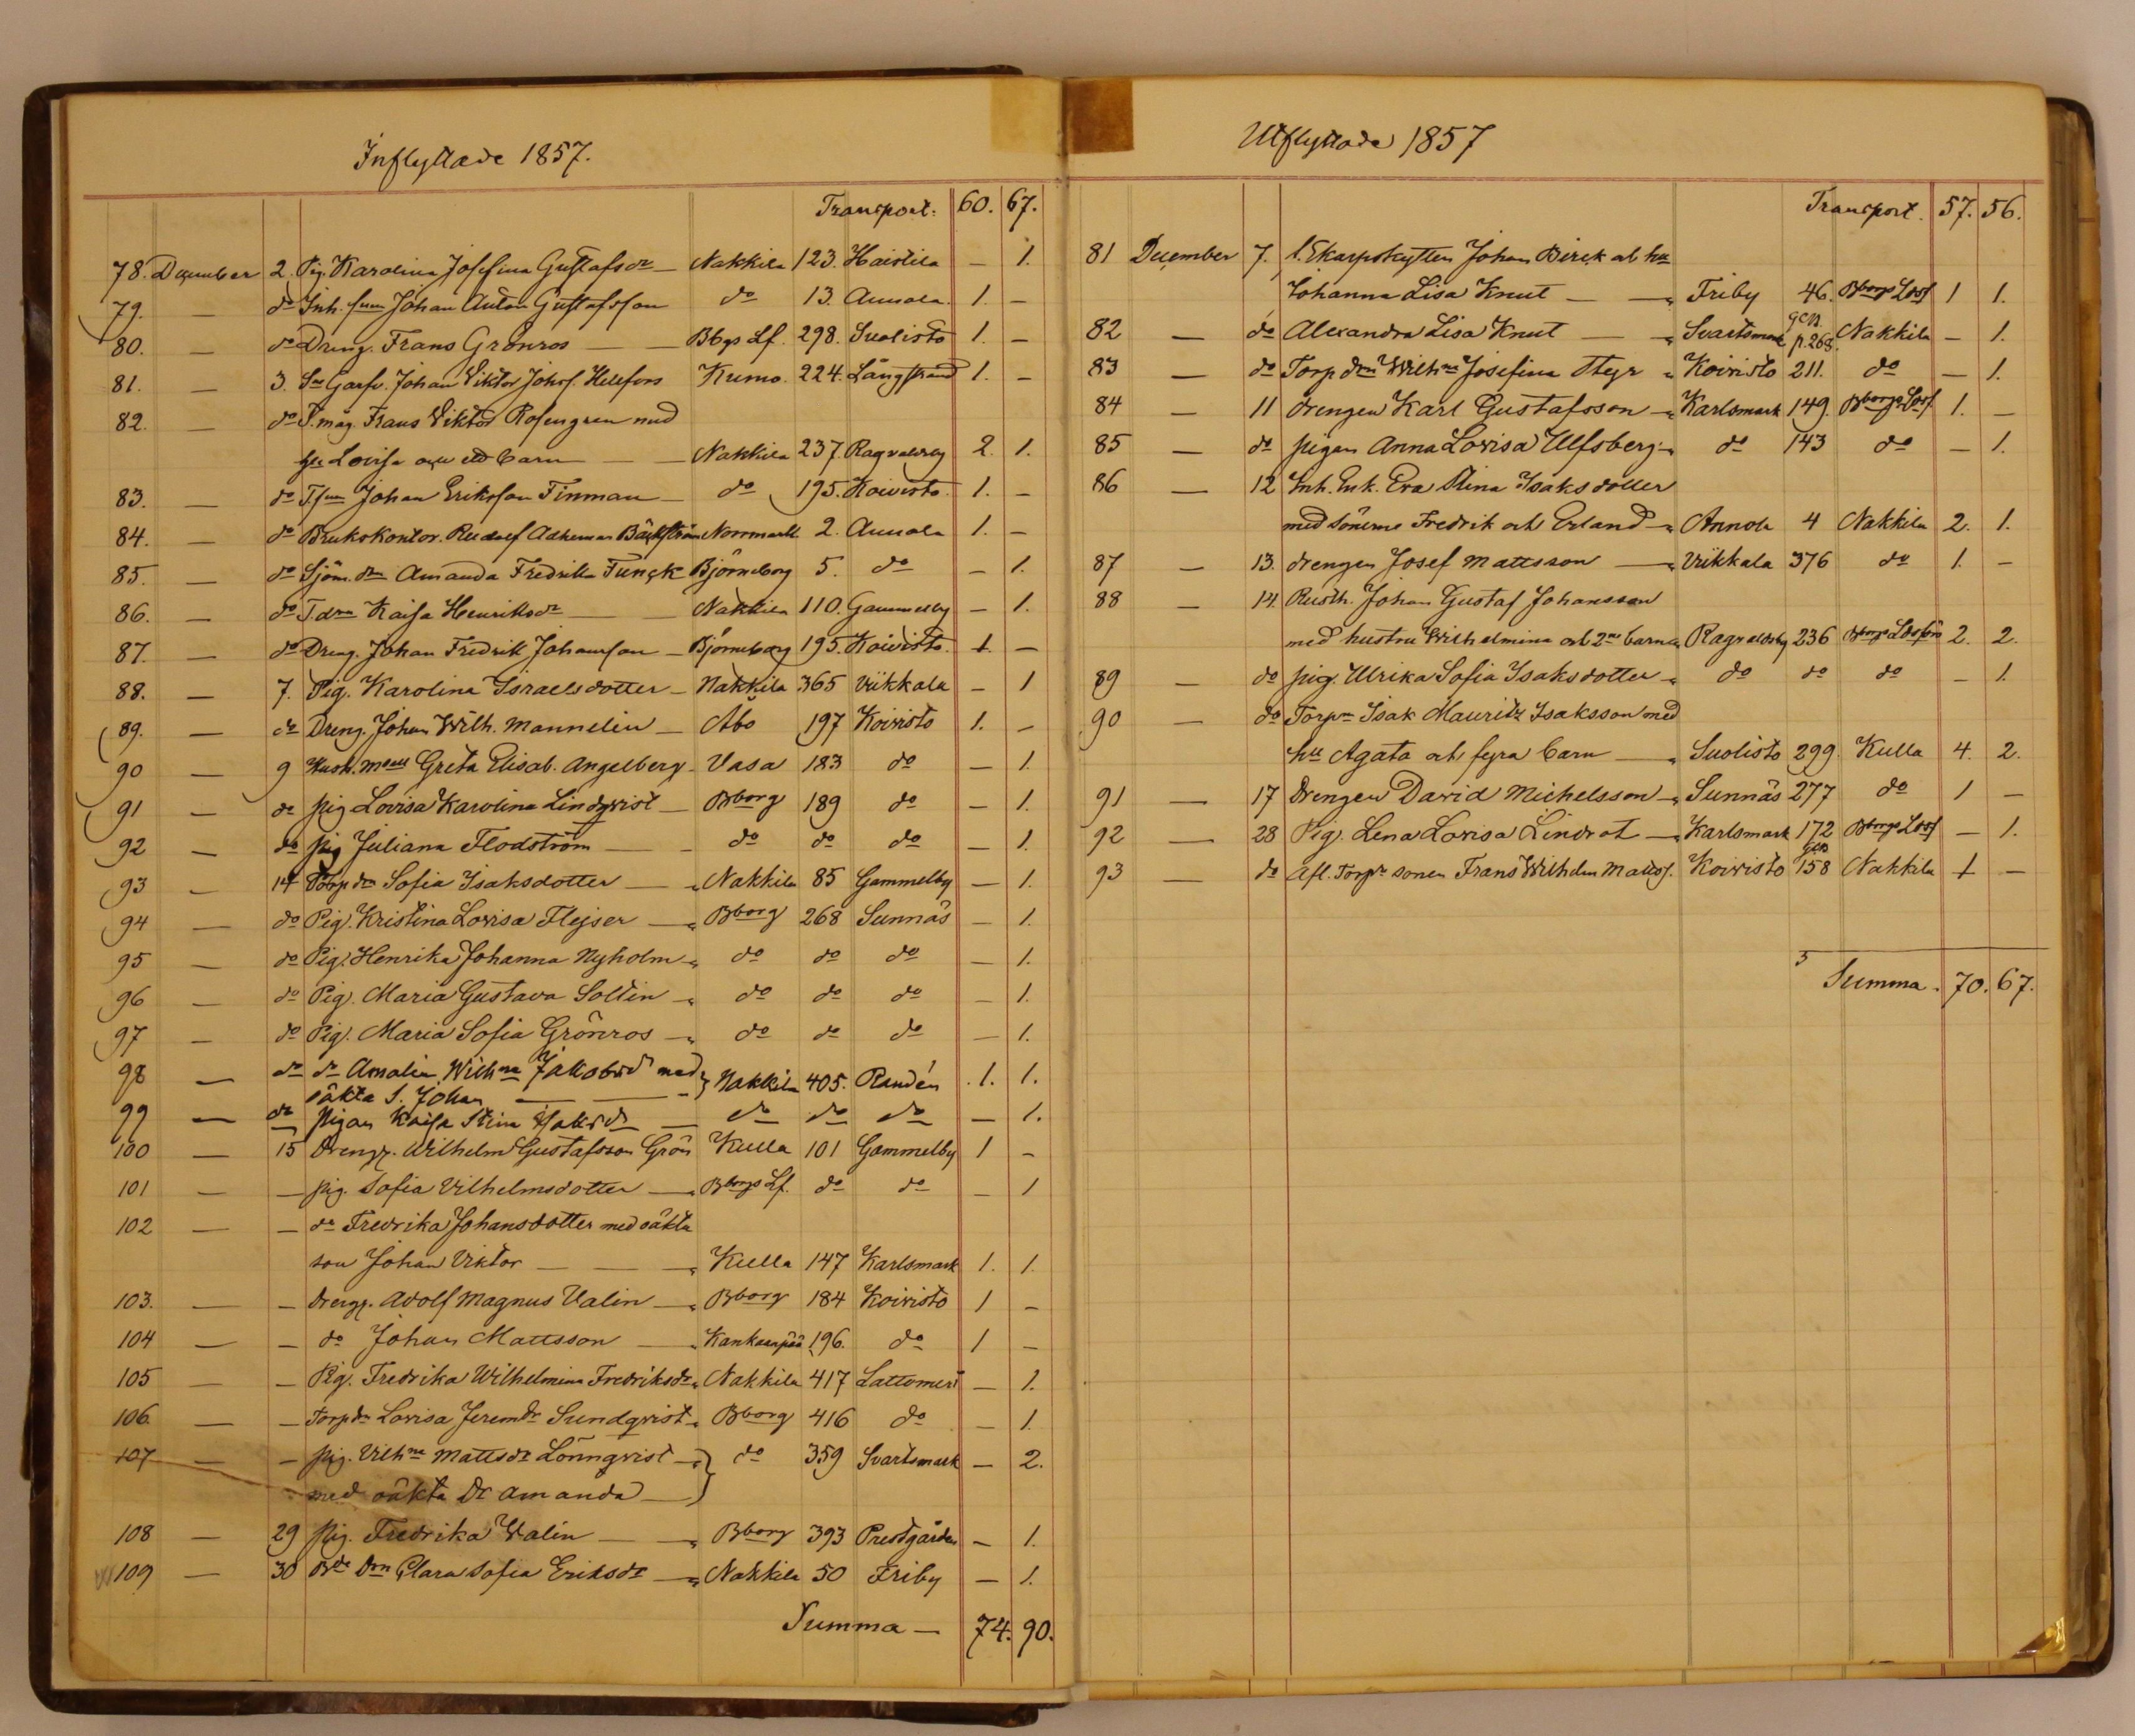 Inflyttade 1857.
Transport. 60. 67.
78. December 2. Pig. Karolina Josefina Gustafsdr — Nakkila 123. Haistila — 1.
79. — do Inh. sonen Johan Anton Gustafsson do 13. Annola. 1. —
80. — do Dreng. Frans Grönros — — Bbgs Lf. 298. Suolisto 1. —
81. — 3. Garfv. Johan Viktor Johsf. Helefors Kumo. 224. Långstrand 1. —
82. — do T. måg. Frans Viktor Rosengren med
hu Lovisa och ett barn — Nakkila 237. Ragvaldsby 2. 1.
83. — do Johan Eriksson Finman — do 195. Koivisto. 1. —
84. — do Brukskontor. Rudolf Adhemar Bäckström Norrmark 2. Annola 1. —
85. — do Sjöm. drn Amanda Fredrika Funck Björneborg 5. do — 1.
86. — do T. drn Kaisa Henriksdr — Nakkila 110. Gammelby — 1.
87. — do Dreng. Johan Fredrik Johansson — Björneborg 195. Koivisto. 1. —
88. — 7. Pig. Karolina Israelsdotter — Nakkila 365 Viikkala — 1
89. — do Dreng. Johan Wilh. Mannelin — Åbo 197 Koivisto 1. —
90 — 9 Greta Elisab. Angelberg — Vasa 183 do — 1.
91 — do pig Lovisa Karolina Lindqvist — Bborg 189 do — 1.
92 — do pig Juliana Flodström — — do do do — 1.
93 — 14 Torp dr Sofia Isaksdotter — Nakkila 85 Gammelby — 1.
94 — do Pig. Kristina Lovisa Flejser — Bborg 268 Sunnäs — 1.
95 — do Pig. Henrika Johanna Nyholm — do do do — 1.
96 — do Pig. Maria Gustava Soltin — do do do — 1.
97 — do Pig. Maria Sofia Grönros — do do do — 1.
98 — do do Amalia Wilhna Jakobsdr med } Nakkila 405. Randén . 1. 1.
oäkta S. Johan — —
99 — do pigan Kaisa Stina — do do do — 1.
100 — 15 Drengr. Wilhelm Gustafsson Grön Kulla 101 Gammelby 1 —
101 — — pig. Sofia Vilhelmsdotter — Bborgs Lf. do do — 1
102 — — do Fredrika Johansdotter med oäkta
son Johan Viktor — — Kulla 147 Karlsmark 1. 1.
103. — — drengr. Adolf Magnus Valin — Bborg 184 Koivisto 1 —
104 — — do Johan Mattsson — Kankaanpää 196. do 1 —
105 — — Pig. Fredrika Wilhelmina Fredriksdr Nakkila 417 Lattomeri — 1.
106. — — Torpdr Lovisa Jeremdr Sundqvist Bborg 416 do — 1.
107 — — pig. Vilhna Mattsdr Lönnqvist — } do 359 Svartsmark — 2.
med oäkta Dr Amanda —
108 — 29 pig. Fredrika Walin — — Bborg 393 Prestgården — 1.
109 — 30 Clara Sofia Eriksdr — Nakkila 50 Friby — 1.
Summa — 74. 90.
Utflyttade 1857
Transport. 57. 56.
81 December 7. Skarpskytten Johan Birck och hu
Johanna Lisa Knut — — Friby 46. Bborgs Ldsf 1 1.
82 — do Alexandra Lisa Knut — Svartsmark p. 268. Nakkila — 1.
83 — do Torp drn Wilhna Josefina Heyr Koivisto 211. do — 1.
84 — 11 drengen Karl Gustafsson — Karlsmark 149. Bborgs Ldsf 1. —
85 — do pigan Anna Lovisa Ulfsberg — do 143 do — 1.
86 — 12 Inh. Enk. Eva Stina Isaksdotter
med sönerne Fredrik och Erland — Annola 4 Nakkila 2. 1.
87 — 13. drengen Josef Mattsson — Viikkala 376 do 1. —
88 — 14. Rusth. Johan Gustaf Johansson
med hustru Wilhelmina och 2ne barn Ragvaldsby 236 Bborgs Ldsförs 2. 2.
89 — do pig. Ulrika Sofia Isaksdotter do do do — 1.
90 — do Torpn Isak Mauritz Isaksson med
hu Agata och fyra barn — Suolisto 299. Kulla 4. 2.
91 — 17 Drengen David Michelsson — Sunnäs 277 do 1 —
92 — 28 Pig. Lena Lovisa Lindrot — Karlsmark 172 Bborgs Ldsf — 1.
93 — do Afl. Torprs sonen Frans Wilhelm Mattsf. Koivisto 158 Nakkila 1 —
Summa. 70. 67.